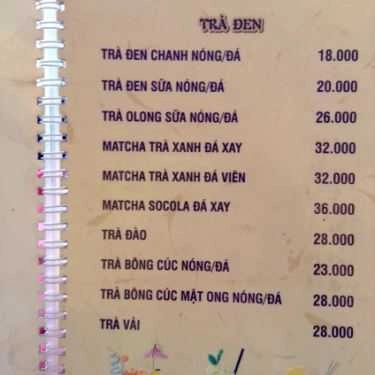 TRÀ ĐEN
TRÀ ĐEN CHANH NÓNG/ĐÁ 18.000
TRÀ ĐEN SỮA NÓNG/ĐÁ 20.000
TRÀ OLONG SỮA NÓNG/ĐÁ 26.000
MATCHA TRÀ XANH ĐÁ XAY 32.000
MATCHA TRÀ XANH ĐÁ VIÊN 32.000
MATCHA SOCOLA ĐÁ XAY 36.000
TRÀ ĐÀO 28.000
TRÀ BÔNG CÚC NÓNG/ĐÁ 23.000
TRÀ BÔNG CÚC MẬT ONG NÓNG/ĐÁ 28.000
TRÀ VẢI 28.000